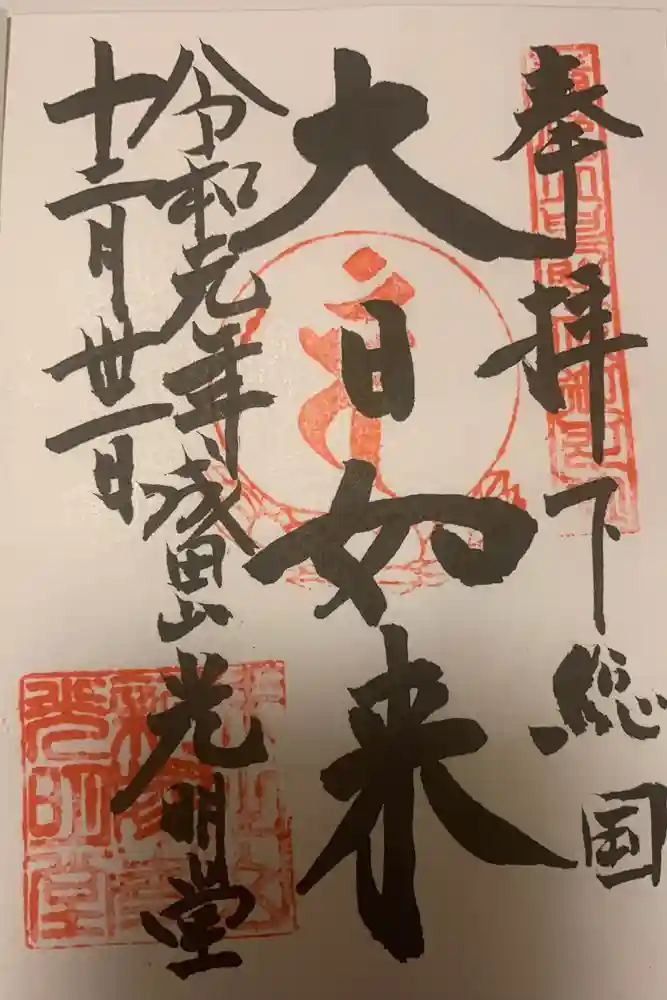 奉拝 下総国
大日如来
令和元年 成田山 光明堂
十二月 丗一日